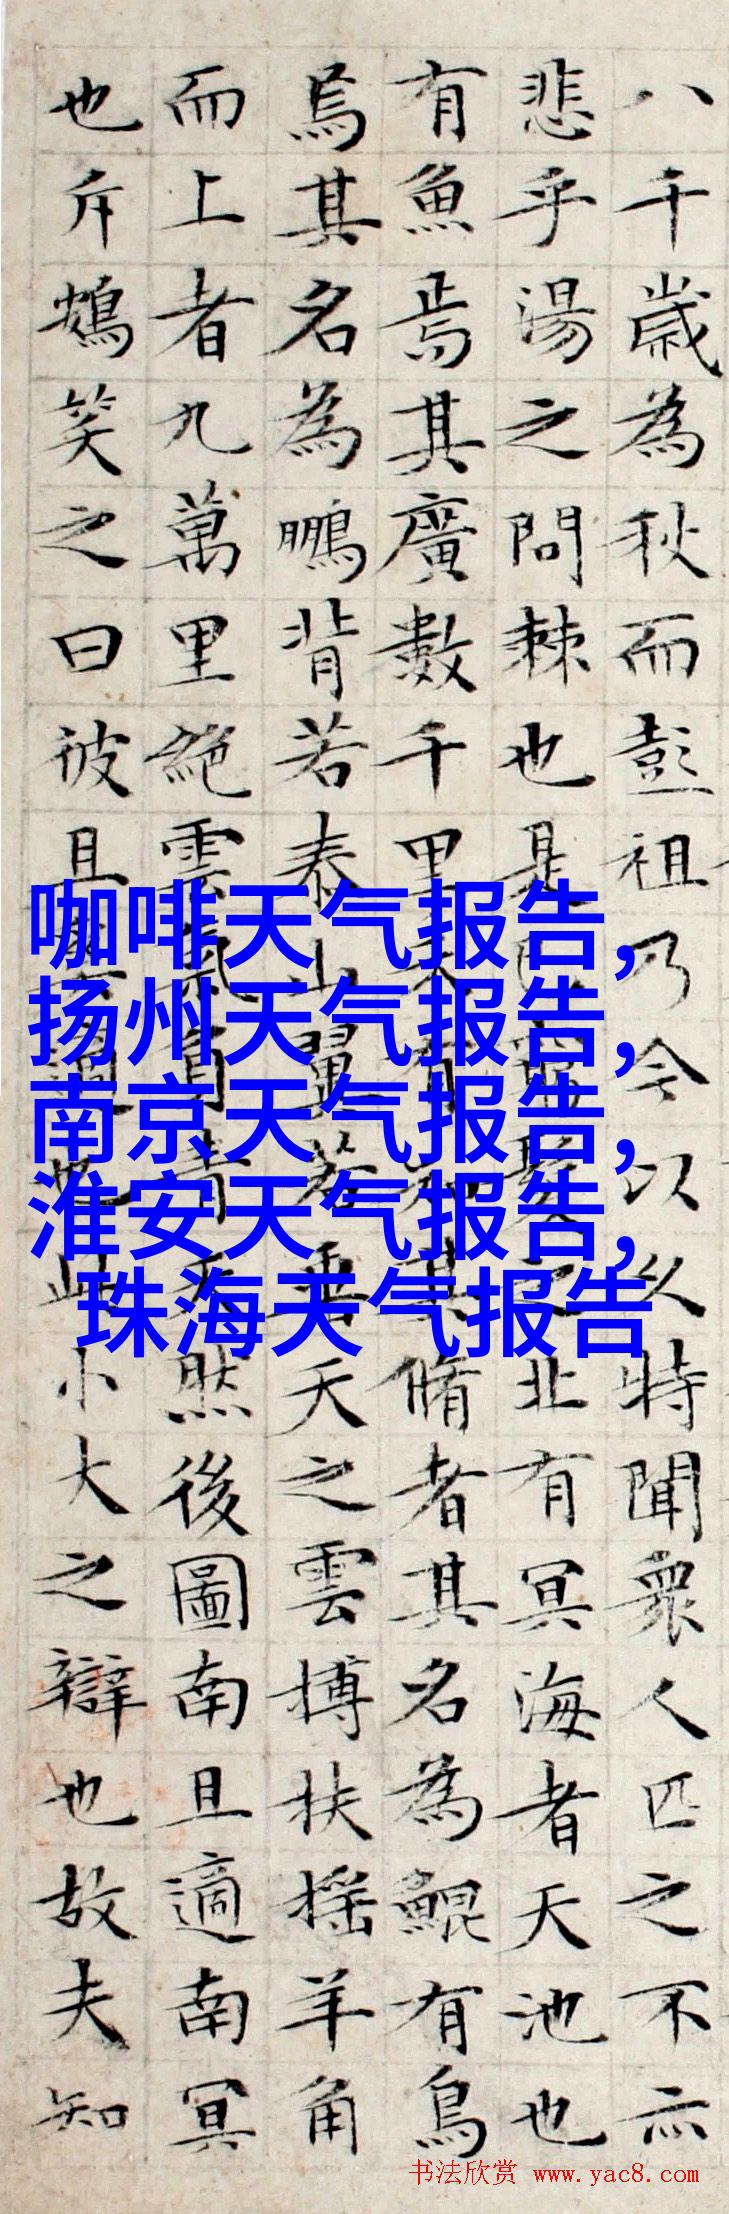 八千歲為秋而彭祖乃今以久特聞衆人匹之不亦
悲乎湯之問棘也是已窮髮之北有冥海者天池也
有魚焉其廣數千里未有知其脩者其名為鯤有鳥
焉其名為鵬背若泰山翼若垂天之雲搏扶搖羊角
而上者九萬里絕雲氣負青天然後圖南且適南冥
也斥鴳笑之曰彼且奚適也此小大之辯也故夫知
咖啡天气报告,
扬州天气报告,
南京天气报告,
淮安天气报告,
珠海天气报告
书法欣赏 www.yac8.com